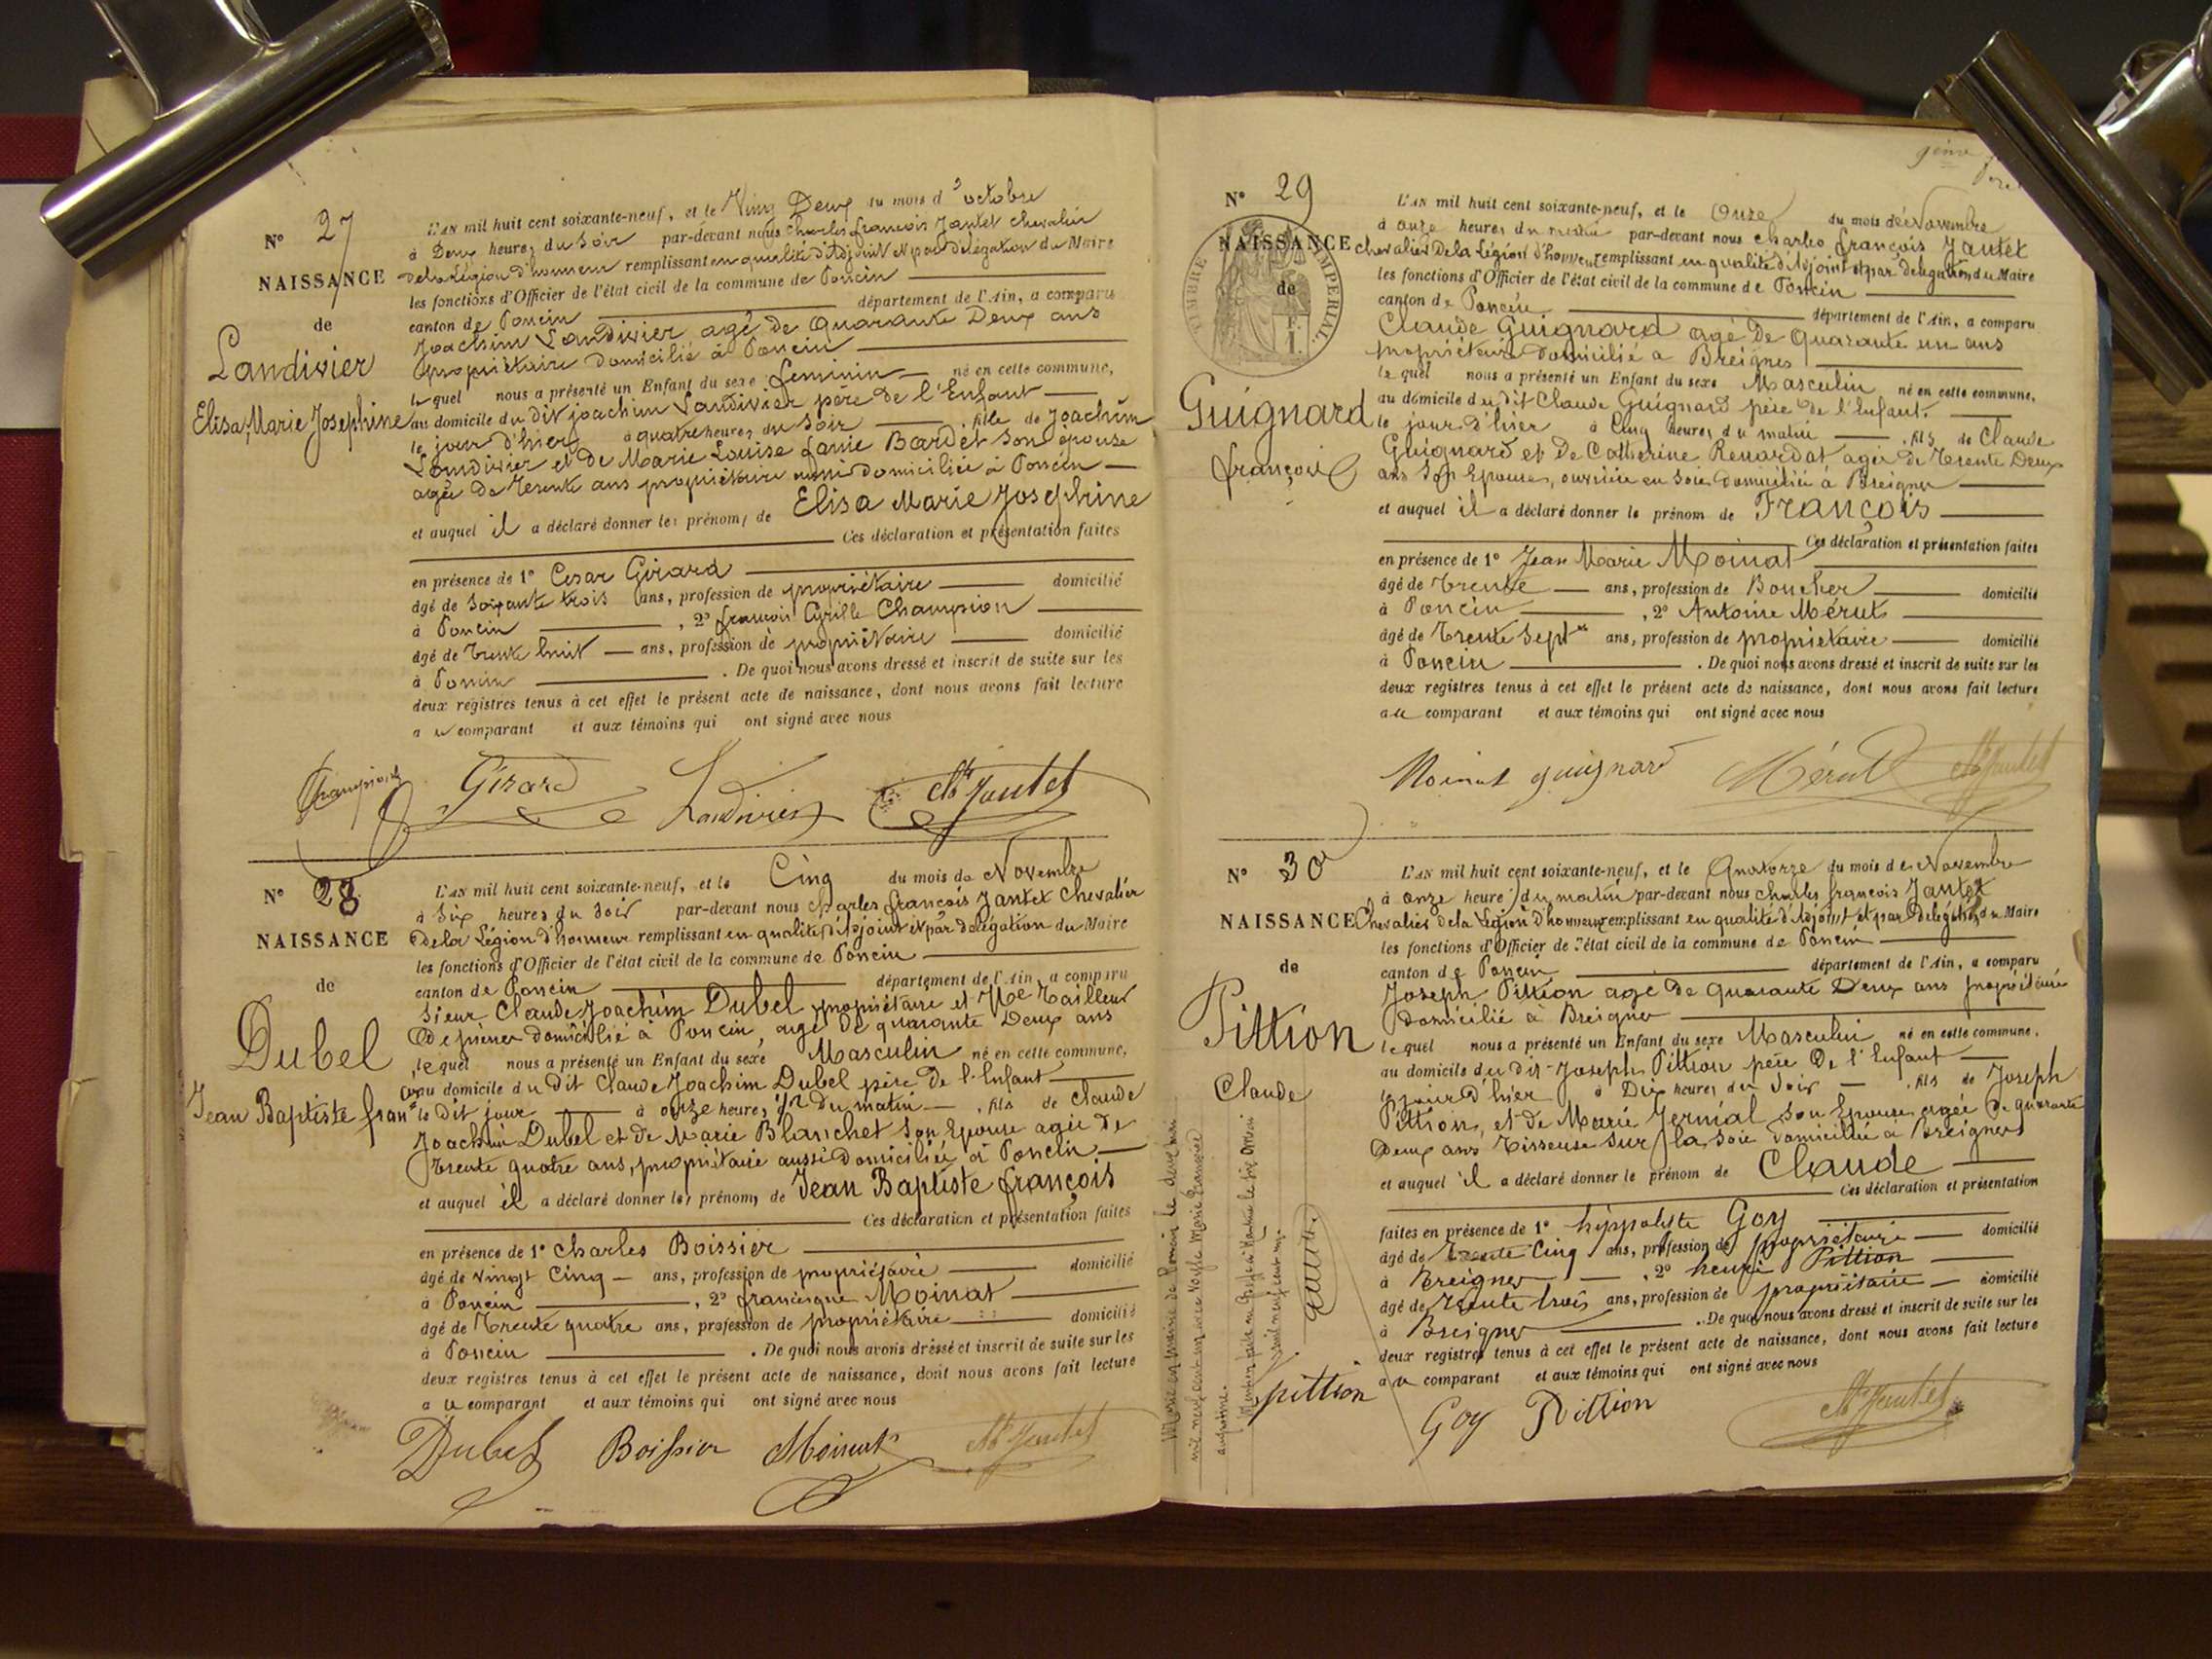 N° 27
NAISSANCE
de
Landivier
Elisa, Marie Josephine
L'AN mil huit cent soixante-neuf, et le Ving Deux du mois d'octobre
à Deux heures du Soir par-devant nous Charles françois Jantet chevalier
de la Légion d'honneur remplissant en qualité d'Adjoint et par délégation du Maire
les fonctions d'Officier de l'état civil de la commune de Poncin
canton de Poncin département de l'Ain, a comparu
Joachim Landivier agé de Quarante Deux ans
propriétaire domicilié à Poncin
lequel nous a présenté un Enfant du sexe feminin né en cette commune,
au domicile du dit joachim Landivier père de l'Enfant
le jour d'hier à quatre heures du Soir fille de Joachim
Landivier et de Marie Louise fanie Bardet son épouse
agée de Trente ans propriétaire aussi domiciliée à Poncin
et auquel il a déclaré donner les prénoms de Elisa Marie Josephine
Ces déclaration et présentation faites
en présence de 1° Cesar Girard
âgé de Soixante trois ans, profession de propriétaire domicilié
à Poncin , 2° françois Cyrille Champion
âgé de Trente huit ans, profession de propriétaire domicilié
à Poncin . De quoi nous avons dressé et inscrit de suite sur les
deux registres tenus à cet effet le présent acte de naissance, dont nous avons fait lecture
a u comparant et aux témoins qui ont signé avec nous
Champion Girard Landivier Ch Jantet
N° 28
NAISSANCE
de
Dubel
Jean Baptiste fran^s
L'AN mil huit cent soixante-neuf, et le Cinq du mois de Novembre
à Six heures du Soir par-devant nous Charles françois Jantet Chevalier
de la Légion d'honneur remplissant en qualité d'Adjoint et par délégation du Maire
les fonctions d'Officier de l'état civil de la commune de Poncin
canton de Poncin département de l'Ain, a comparu
Sieur Claude Joachim Dubel propriétaire et Tailleur
De pierres domicilié à Poncin, agé de quarante Deux ans
lequel nous a présenté un Enfant du sexe Masculin né en cette commune,
au domicile du dit Claude Joachim Dubel père de l'Enfant
le dit jour à onze heures 1/2 du matin , fils de Claude
Joachim Dubel et de Marie Blanchet son Epouse agée de
trente quatre ans, propriétaire aussi domiciliée à Poncin
et auquel il a déclaré donner les prénoms de Jean Baptiste françois
Ces déclaration et présentation faites
en présence de 1° Charles Boissier
âgé de Vingt Cinq ans, profession de propriétaire domicilié
à Poncin , 2° francisque Moinat
âgé de Trente quatre ans, profession de propriétaire domicilié
à Poncin . De quoi nous avons dressé et inscrit de suite sur les
deux registres tenus à cet effet le présent acte de naissance, dont nous avons fait lecture
a u comparant et aux témoins qui ont signé avec nous
Dubel Boissier Moinat Ch Jantet
N° 29
NAISSANCE
de
TIMBRE IMPERIAL
Guignard
françois
L'AN mil huit cent soixante-neuf, et le Onze du mois de Novembre
à onze heures du matin par-devant nous Charles françois Jantet
Chevalier De la Légion d'honneur remplissant en qualité d'Adjoint et par délégation du Maire
les fonctions d'Officier de l'état civil de la commune de Poncin
canton de Poncin département de l'Ain, a comparu
Claude Guignard agé De Quarante un ans
propriétaire domicilié à Breignes
lequel nous a présenté un Enfant du sexe Masculin né en cette commune,
au domicile du dit Claude Guignard père de l'Enfant.
le jour d'hier à Cinq heures du matin , fils de Claude
Guignard et De Catherine Renardat agée de Trente Deux
ans Son Epouse, ouvrière en soie domiciliée à Breignes
et auquel il a déclaré donner le prénom de François
Ces déclaration et présentation faites
en présence de 1° Jean Marie Moinat
âgé de Trente ans, profession de Boucher domicilié
à Poncin , 2° Antoine Mérut
âgé de Trente Sept ans, profession de propriétaire domicilié
à Poncin . De quoi nous avons dressé et inscrit de suite sur les
deux registres tenus à cet effet le présent acte de naissance, dont nous avons fait lecture
a u comparant et aux témoins qui ont signé avec nous
Moinat guignard Mérut Ch Jantet
N° 30
NAISSANCE
de
Pittion
Claude
L'AN mil huit cent soixante-neuf, et le Quatorze du mois de Novembre
à onze heure du matin par-devant nous Charles françois Jantet
Chevalier de la Légion d'honneur remplissant en qualité d'Adjoint et par délégation du Maire
les fonctions d'Officier de l'état civil de la commune de Poncin
canton de Poncin département de l'Ain, a comparu
Joseph Pittion agé de Quarante Deux ans propriétaire
domicilié à Breignes
lequel nous a présenté un Enfant du sexe Masculin né en cette commune.
au domicile du dit Joseph Pittion père De l'Enfant
le jour d'hier à Dix heures du Soir , fils de Joseph
Pittion, et de Marie Jernial son Epouse agée de quarante
Deux ans Tisseuse Sur la Soie domiciliée à Breignes
et auquel il a déclaré donner le prénom de Claude
Ces déclaration et présentation
faites en présence de 1° hippolyte Goy domicilié
âgé de Trente Cinq ans, profession de propriétaire
à Breignes , 2° henri Pittion
âgé de Trente trois ans, profession de propriétaire domicilié
à Breignes . De quoi nous avons dressé et inscrit de suite sur les
deux registres tenus à cet effet le présent acte de naissance, dont nous avons fait lecture
a u comparant et aux témoins qui ont signé avec nous
pittion Goy Pittion Ch Jantet
Marié en mairie de Poncin le deux
mil neuf cent un avec Marie Françoise
augustine.
Mention faite au Greffe à Nantua le six
mil neuf cent un.